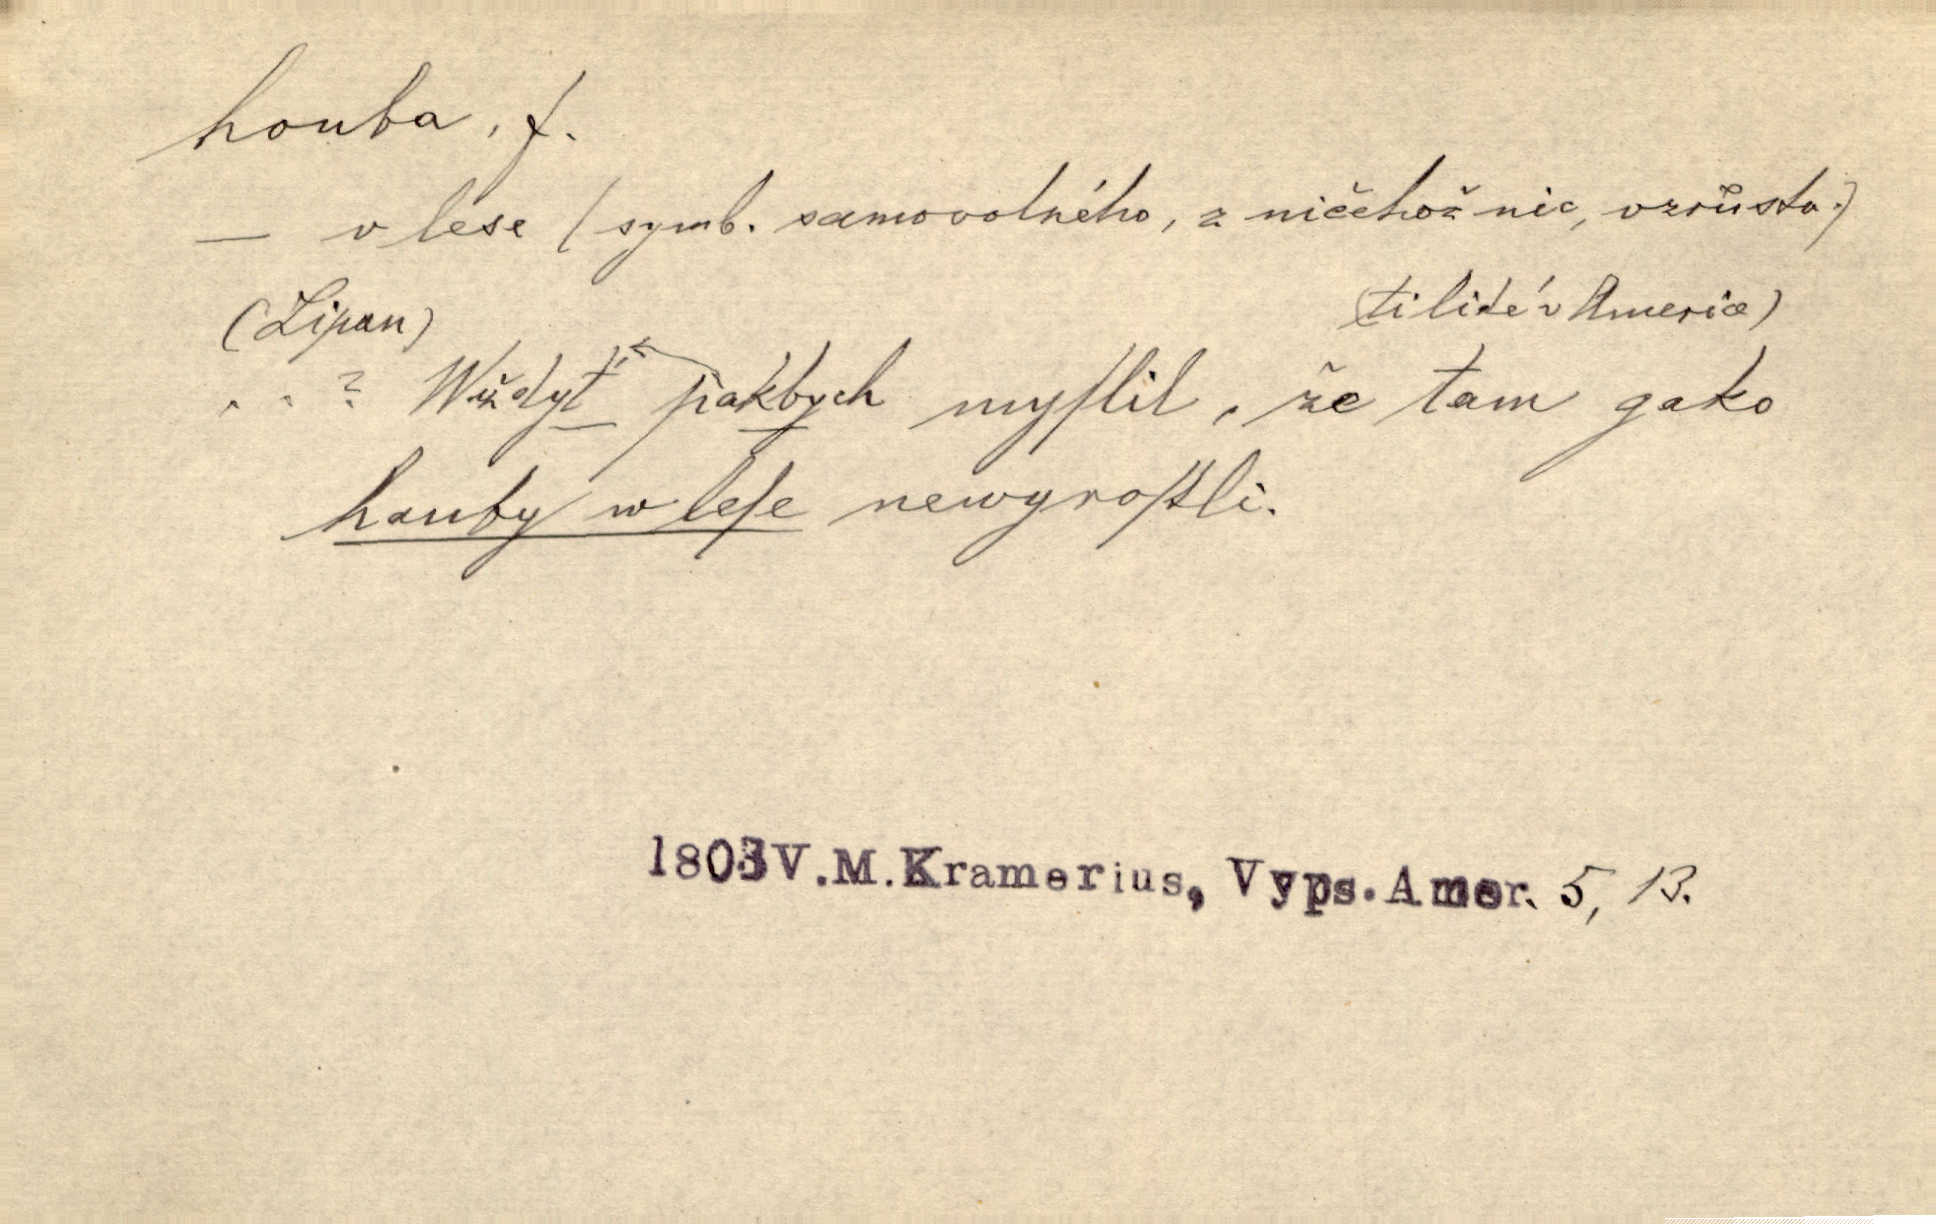 houba, f.
— v lese (symb. samovolného, z ničehož nic, vzrůstu.)
(Lipan) (ti lidé v Americe)
. . ? Wždyť pakbych myſlil, že tam gako
hauby w leſe newyroſtli.
1803 V.M.Kramerius, Vyps.Amer. 5, 13.